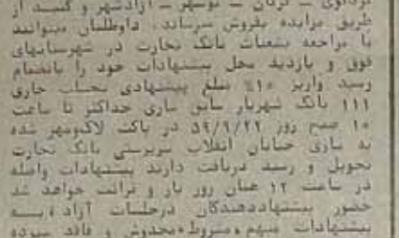 کردکوی ـ گرگان ـ نوشهر ـ آزادشهر و گنبد از
طریق مزایده بفروش میرساند. داوطلبان میتوانند
با مراجعه بشعبات بانک تجارت در شهرستانهای
فوق و بازدید محل پیشنهادات خود را بانضمام
رسید واریز ۱۰٪ مبلغ پیشنهادی بحساب جاری
۱۱۱ بانک شهریار سابق ساری حداکثر تا ساعت
۱۰ صبح روز ۵۹/۹/۲۲ در پاکت لاکومهر شده
به ساری خیابان انقلاب سرپرستی بانک تجارت
تحویل و رسید دریافت دارند پیشنهادات واصله
در ساعت ۱۲ همان روز باز و قرائت خواهد شد
حضور پیشنهاددهندگان درجلسات آزاد و به
پیشنهادات مبهم و مشروط و مخدوش و فاقد سپرده